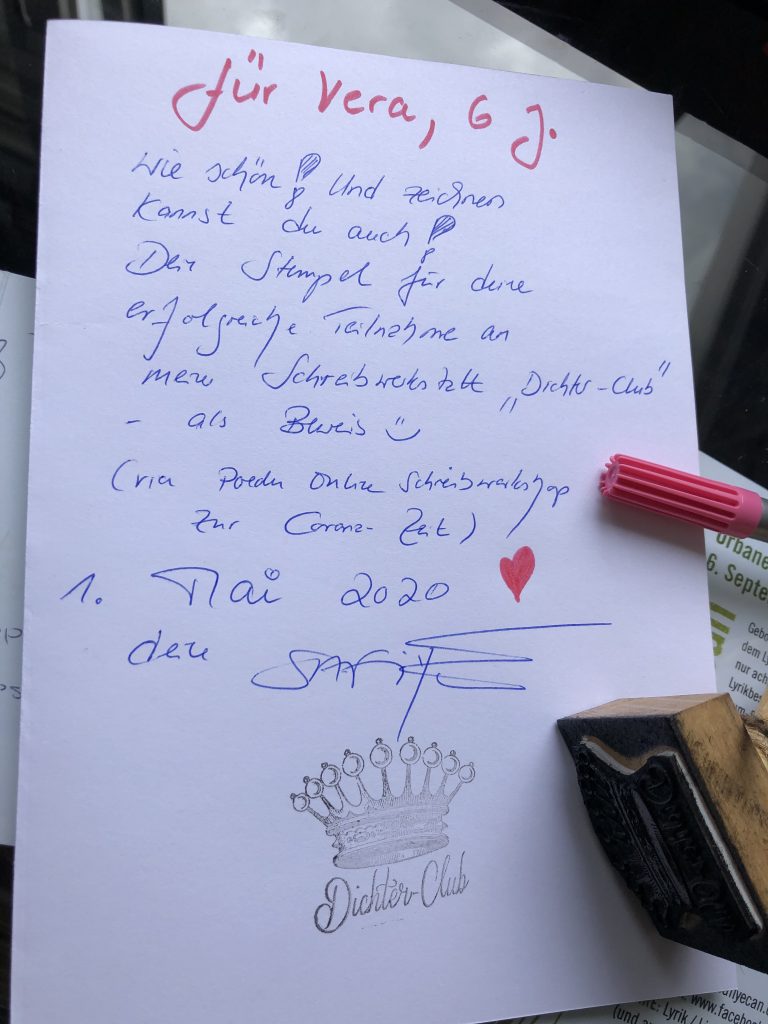 für Vera, 6 J.
Wie schön! Und zeichnen
kannst du auch!
Dein Stempel für deine
erfolgreiche Teilnahme an
meiner Schreibwerkstatt „Dichter-Club"
- als Beweis
(via Online Schreibworkshop
zur Corona-Zeit)
1. Mai 2020
deine
Dichter-Club
urbane
6. Septe
Gebo
dem Ly
nur ach
Lyrikbes
www.facebo
E: Lyrik / Li
(und a